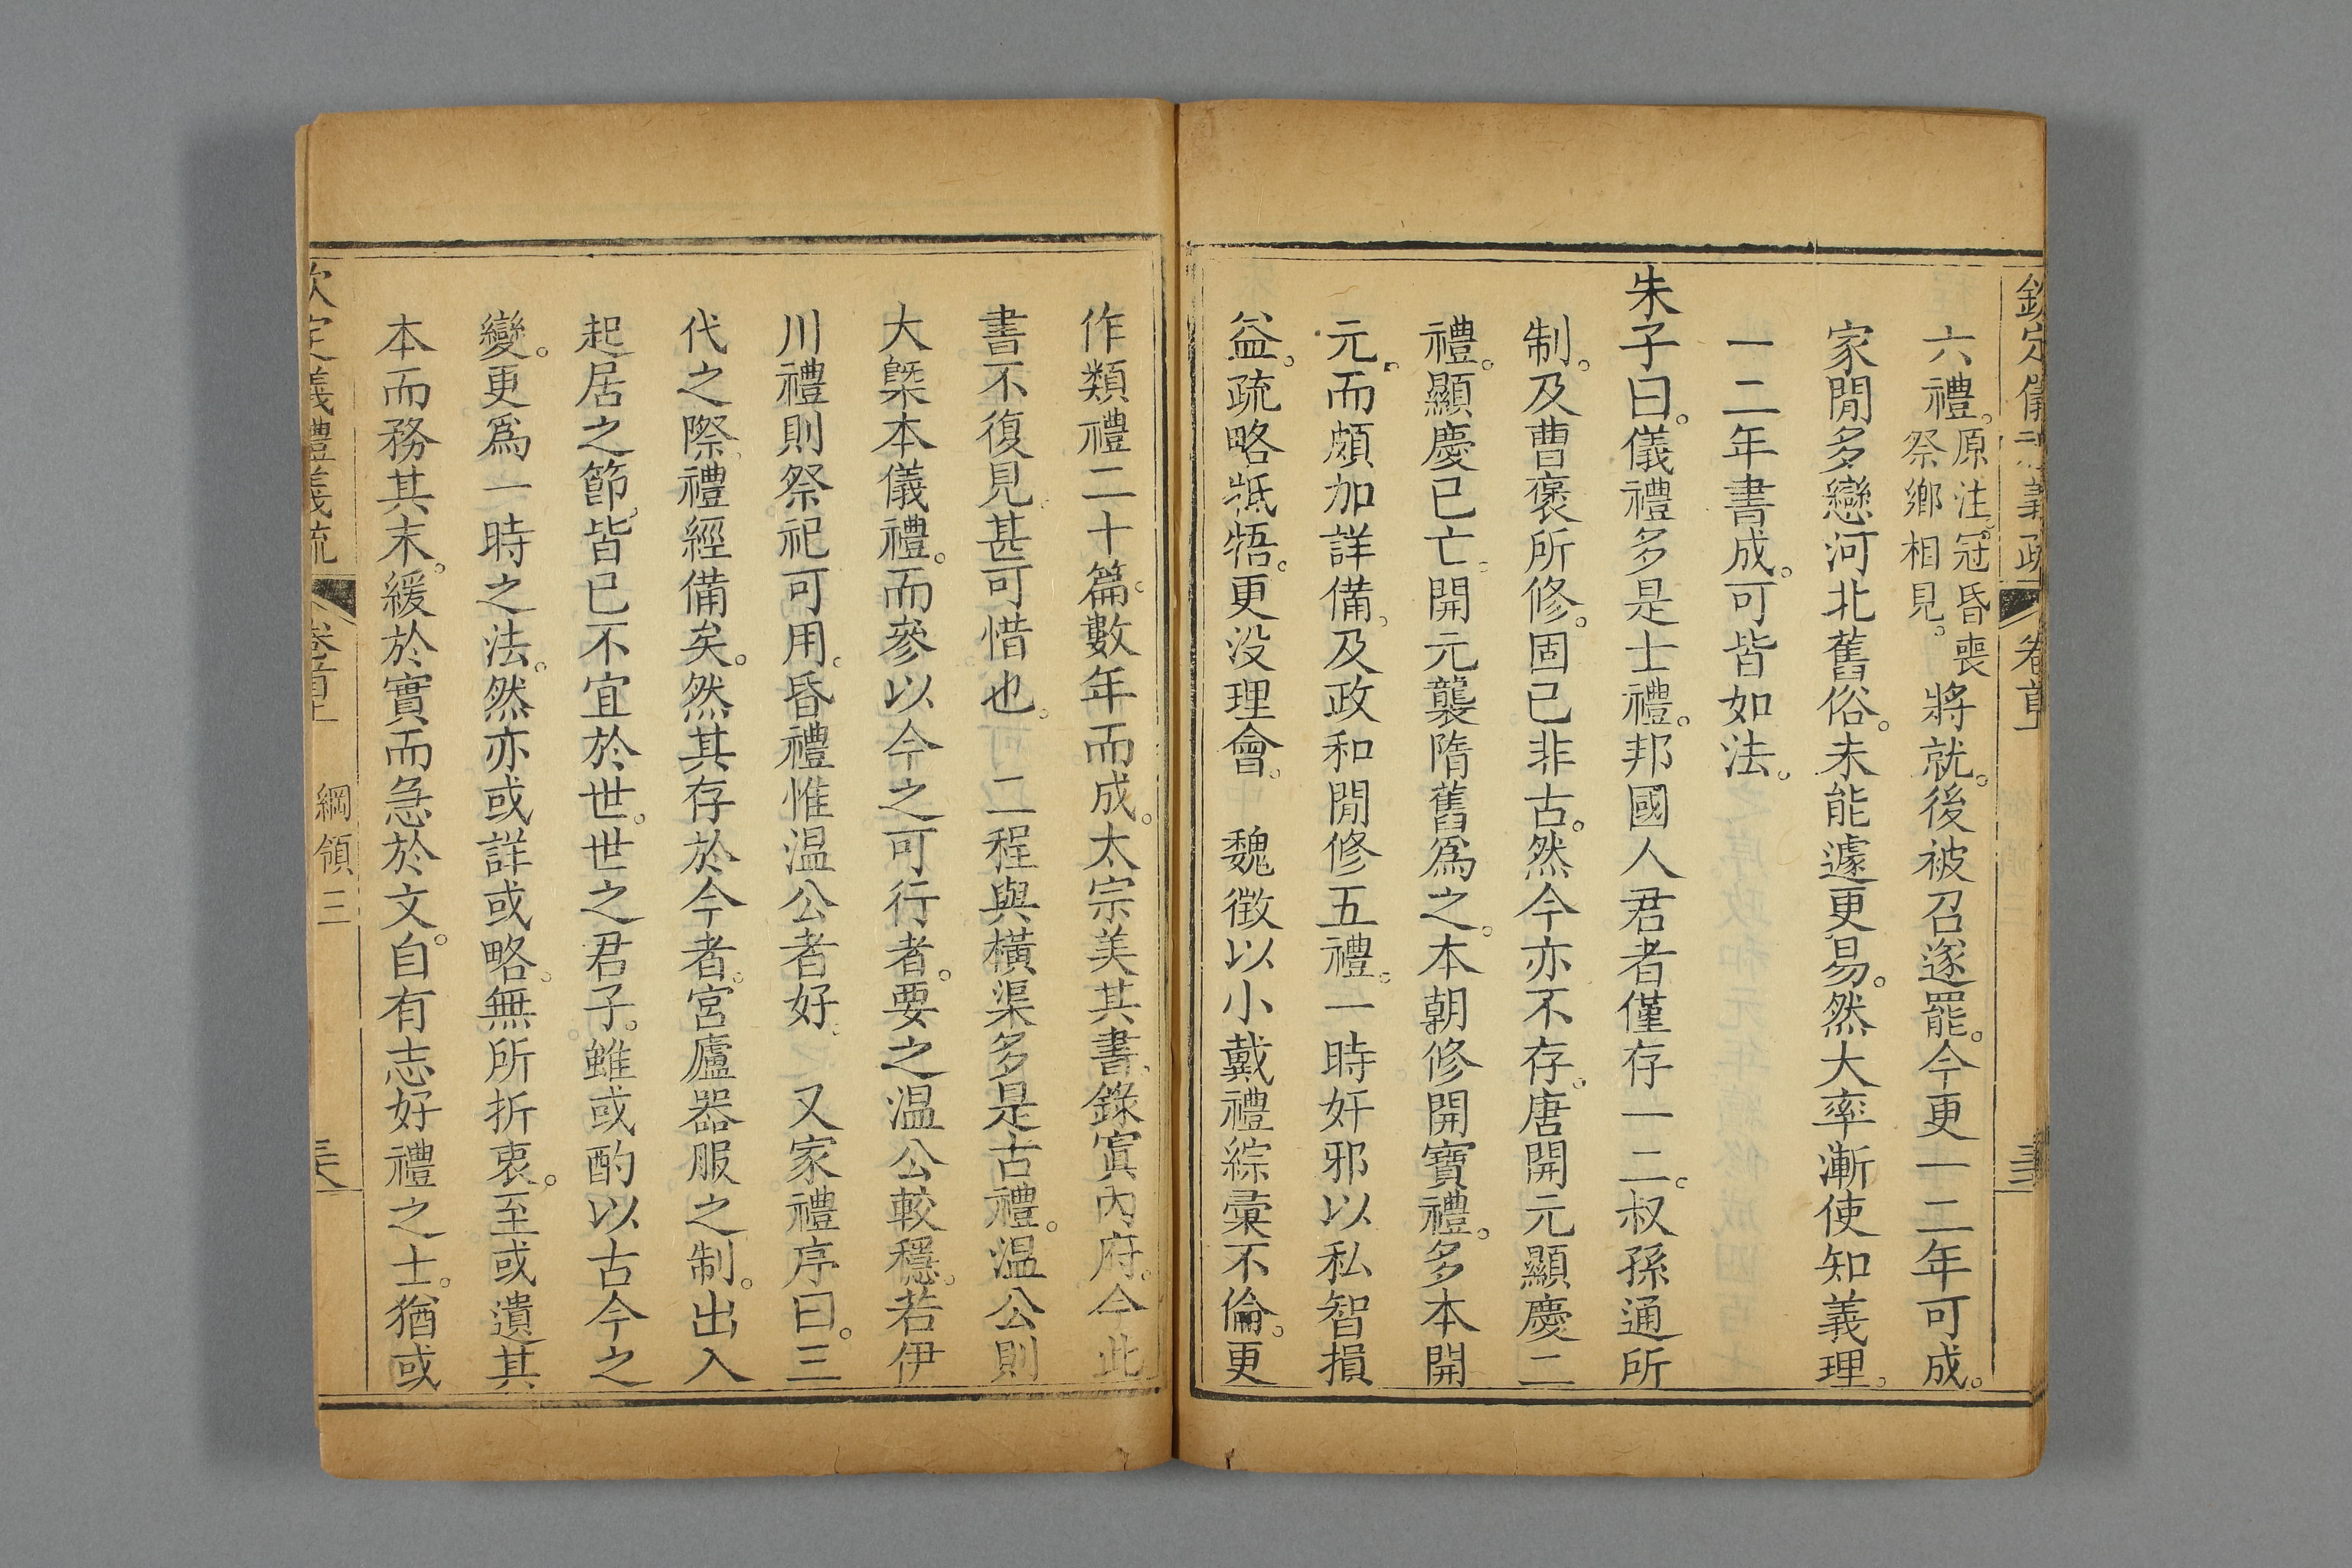 欽定儀禮義疏 卷首上
六禮。原注。冠昏喪祭鄉相見。將就。後被召遂罷。今更一二年可成。
家閒多戀河北舊俗。未能遽更易。然大率漸使知義理。
一二年書成。可皆如法。
朱子曰。儀禮多是士禮。邦國人君者僅存一二。叔孫通所
制。及曹褒所修。固已非古。然今亦不存。唐開元顯慶二
禮。顯慶已亡。開元襲隋舊為之。本朝修開寶禮。多本開
元。而頗加詳備。及政和閒修五禮。一時奸邪以私智損
益。疏略牴牾。更没理會。 魏徵以小戴禮綜彙不倫。更
作類禮二十篇。數年而成。太宗美其書。錄寘內府。今此
書不復見。甚可惜也。 二程與橫渠多是古禮。温公則
大槩本儀禮。而參以今之可行者。要之温公較穩。若伊
川禮則祭祀可用。昏禮惟温公者好。 又家禮序曰。三
代之際。禮經備矣。然其存於今者。宮廬器服之制。出入
起居之節。皆已不宜於世。世之君子。雖或酌以古今之
變。更爲一時之法。然亦或詳或略。無所折衷。至或遺其
本而務其末。緩於實而急於文。自有志好禮之士。猶或
欽定儀禮義疏 卷首上 綱領三